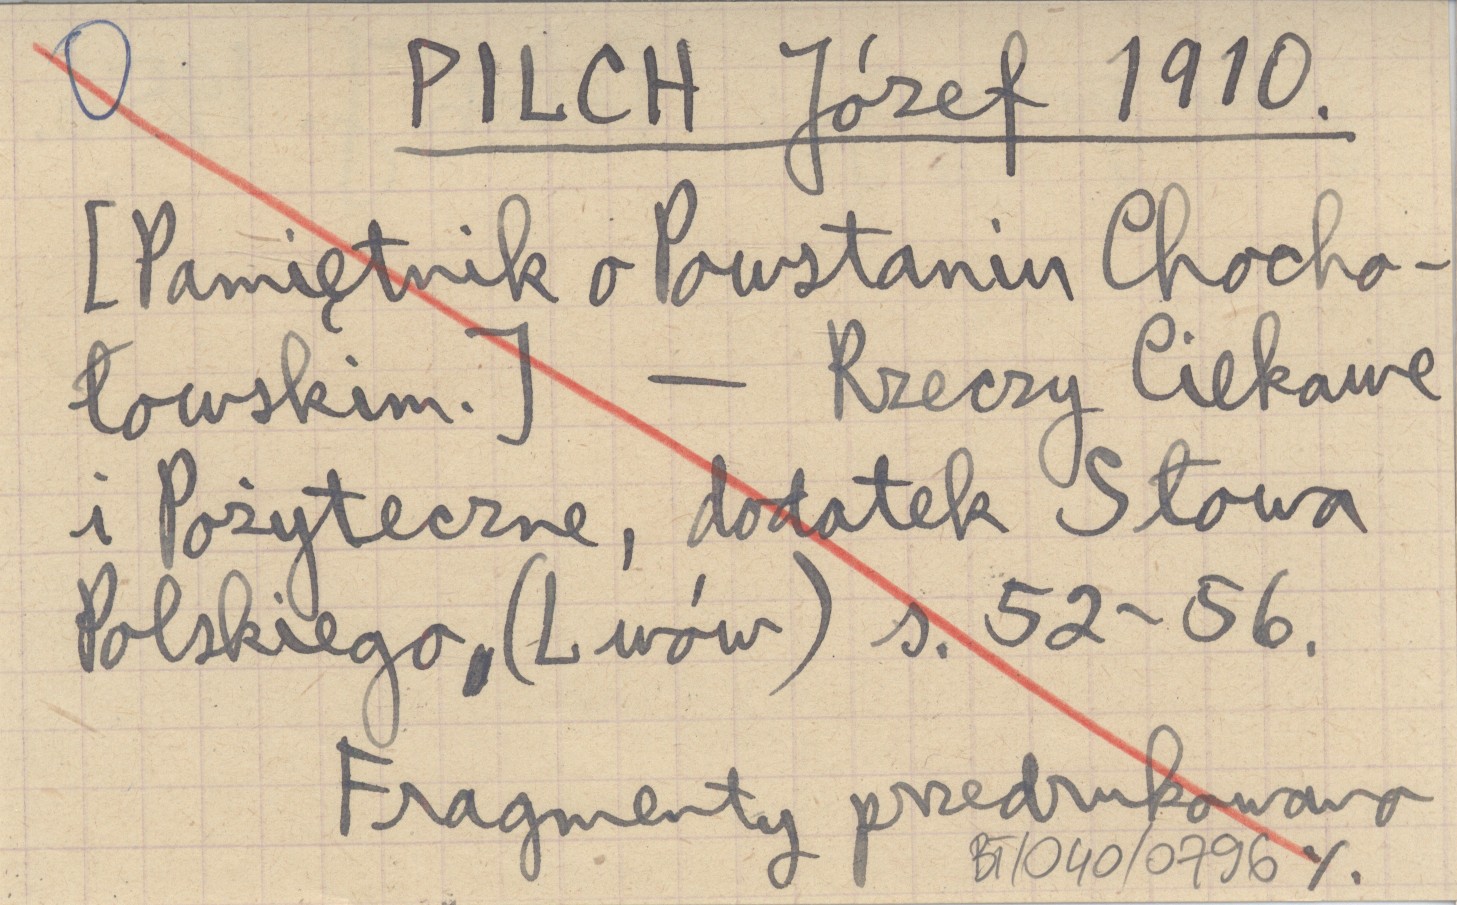 PILCH Józef 1910.
[Pamiętnik o Powstaniu Chocho-
łowskim.] — Rzeczy Ciekawe
i Pożyteczne, dodatek Słowa
Polskiego, (Lwów) s. 52-56.
Fragmenty przedrukowano
BT/040/0796 ./.